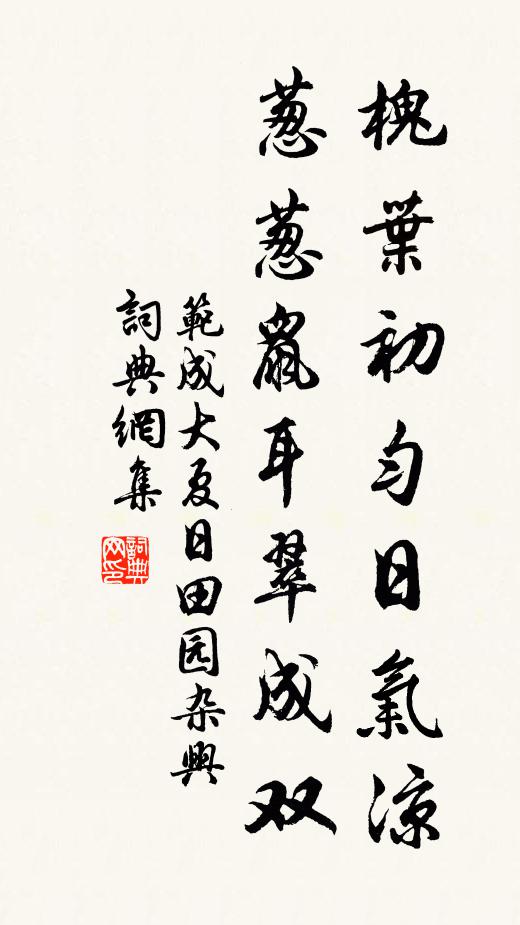 槐葉初勻日氣涼
葱葱鼠耳翠成双
範成大夏日田园杂興
詞典網集
詞典
网印